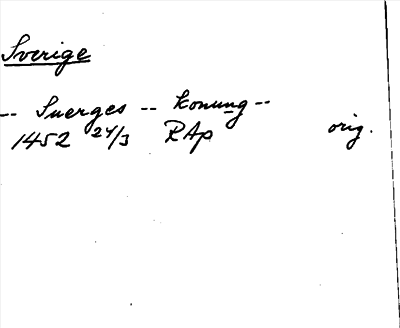 Sverige
-- Suerges -- konung --
1452 24/3 RAp orig.